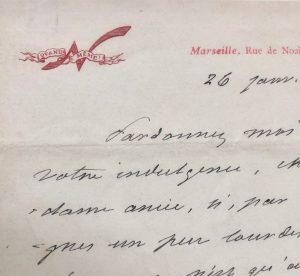 QUAND MÊME!
Marseille, Rue de Noai
26 janv.
Pardonnez moi
votre indulgence, ch
-dame amie, si, par
-ques un peu lourdes
n'est qu'a